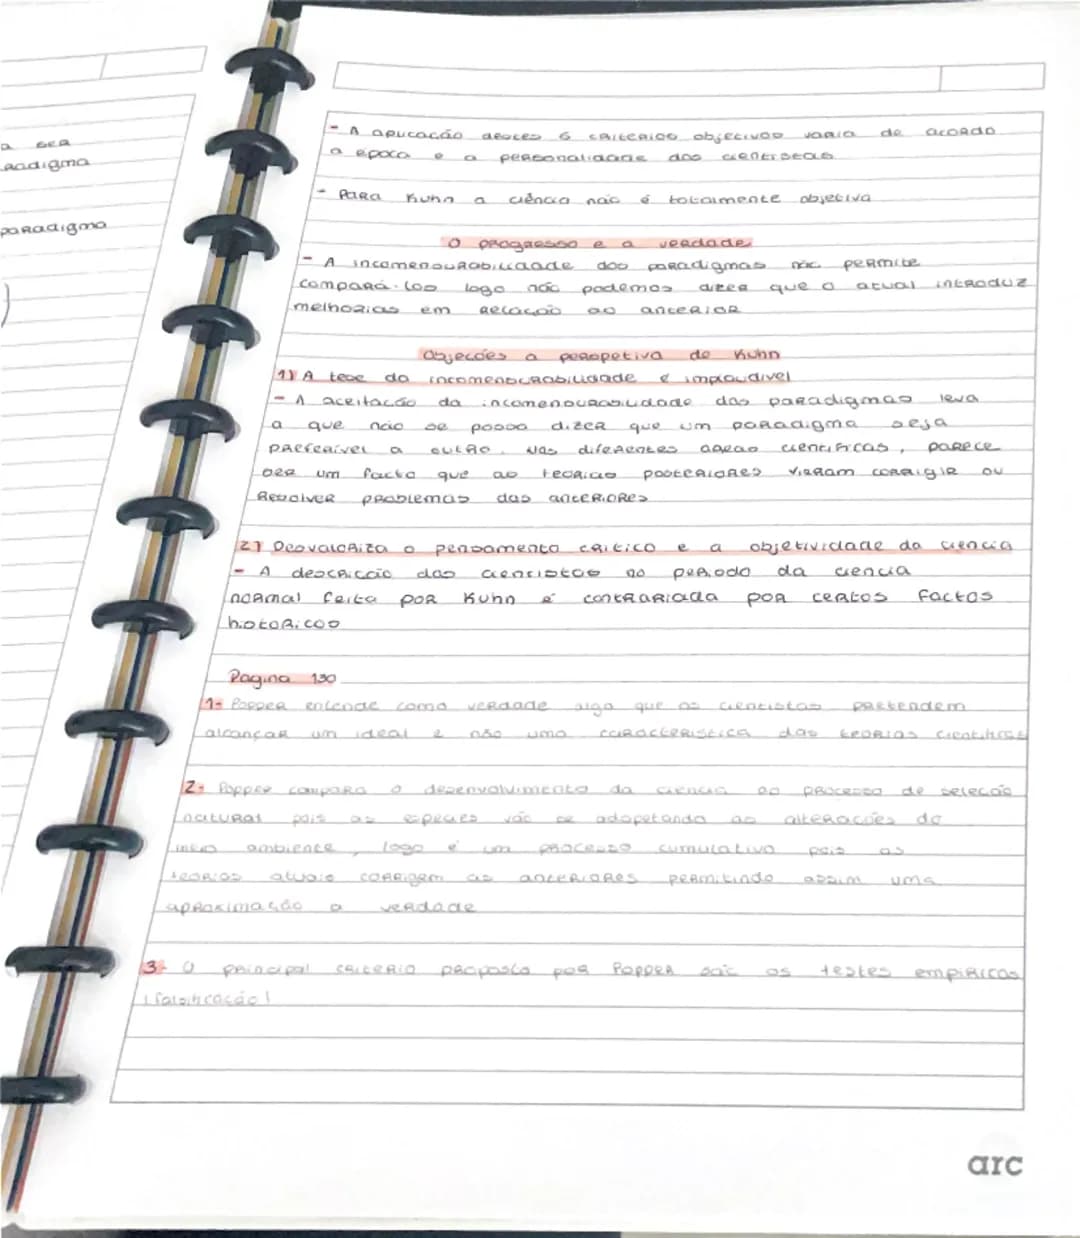 a ser
paradigma
paradigma
- A aplicação desces 6 criterios objecivos varia de acordo
a epoca e a personalidade dos cientistas
- Para Kuhn a ciência não é totalmente objetiva
O progresso e a verdade
- A incomensurabilidade dos paradigmas não permite
compara-los logo não podemos dizer que o atual introduz
melhorias em relação ao anterior
Objeções a perspetiva de Kuhn
1) A tese da incomensurabilidade é implausivel
- A aceitação da incomensurabilidade dos paradigmas leva
a que não se possa dizer que um paradigma seja
preferivel a outro. Nas diferentes areas cientificas, parece
ser um facto que as teorias posteriores vieram corrigir ou
resolver problemas das anteriores
2) Desvaloriza o pensamento critico e a objetividade da ciencia
- A descrição dos cientistas no periodo da ciencia
normal feita por Kuhn é contrariada por certos factos
historicos
Pagina 130
1- Popper entende como verdade algo que os cientistas pretendem
alcançar um ideal e não uma caracteristica das teorias cientificas
2- Popper compara o desenvolvimento da ciencia ao processo de seleção
natural pois as especies vão se adapetando as alterações do
meio ambiente, logo é um processo cumulativo pois as
teorias atuais corrigem as anteriores permitindo assim uma
aproximação a verdade
3- O principal criterio proposto por Popper são os testes empiricos
(falsificação)
arc